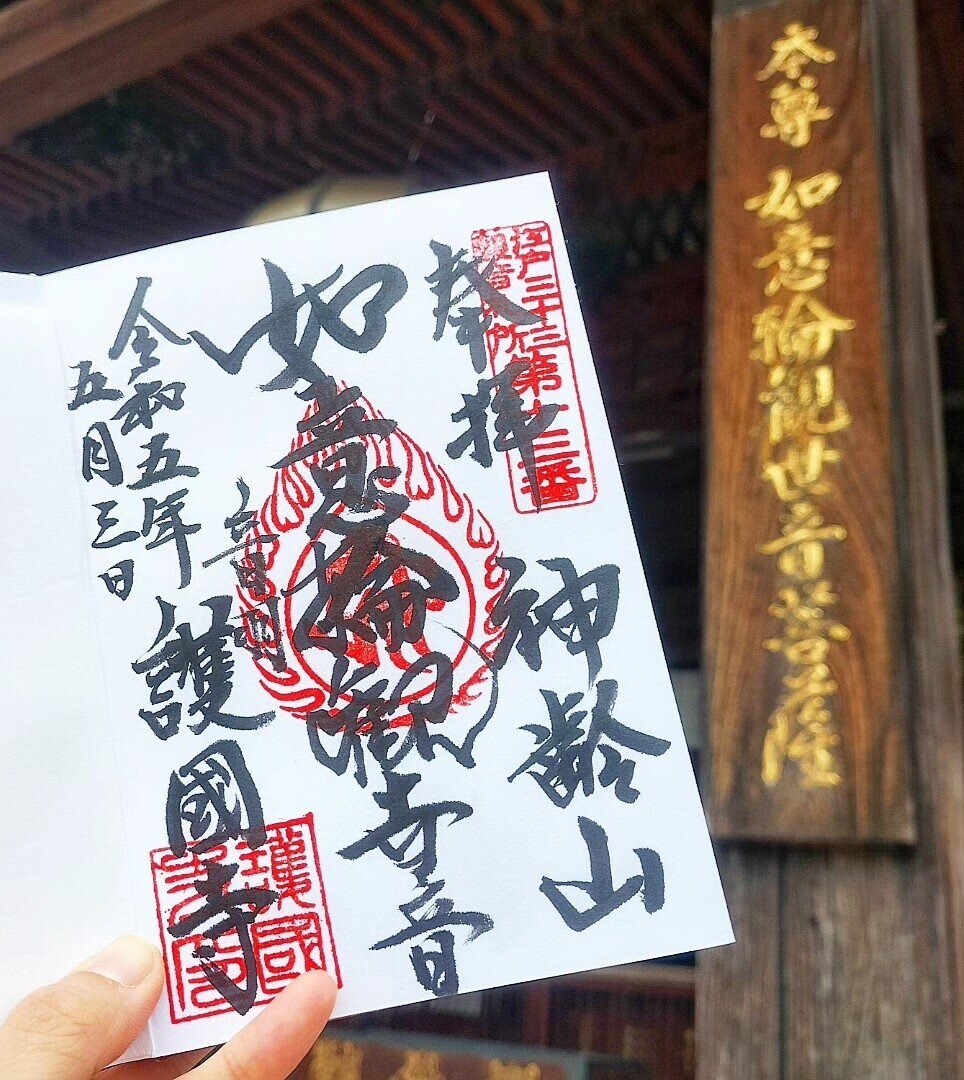 本尊 如意輪觀世音菩薩
江戸三十三
観音札所
第十三番
奉拝
神齢山
如意輪観世音
音羽
護國寺
令和五年
五月三日